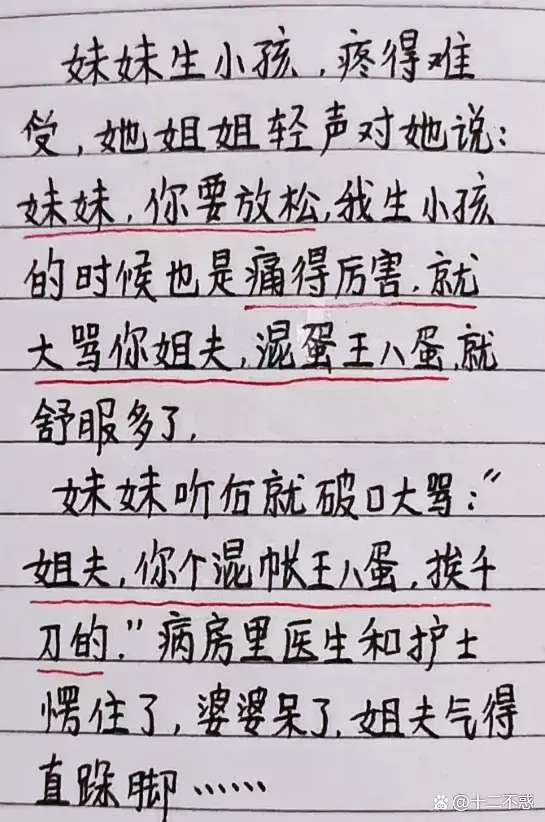 妹妹生小孩，疼得难
受，她姐姐轻声对她说：
妹妹，你要放松，我生小孩
的时候也是痛得厉害．就
大骂你姐夫，混蛋王八蛋，就
舒服多了．
妹妹听后就破口大骂：“
姐夫，你个混帐王八蛋，挨千
刀的．”病房里医生和护士
愣住了，婆婆呆了．姐夫气得
直跺脚……
@十二不惑